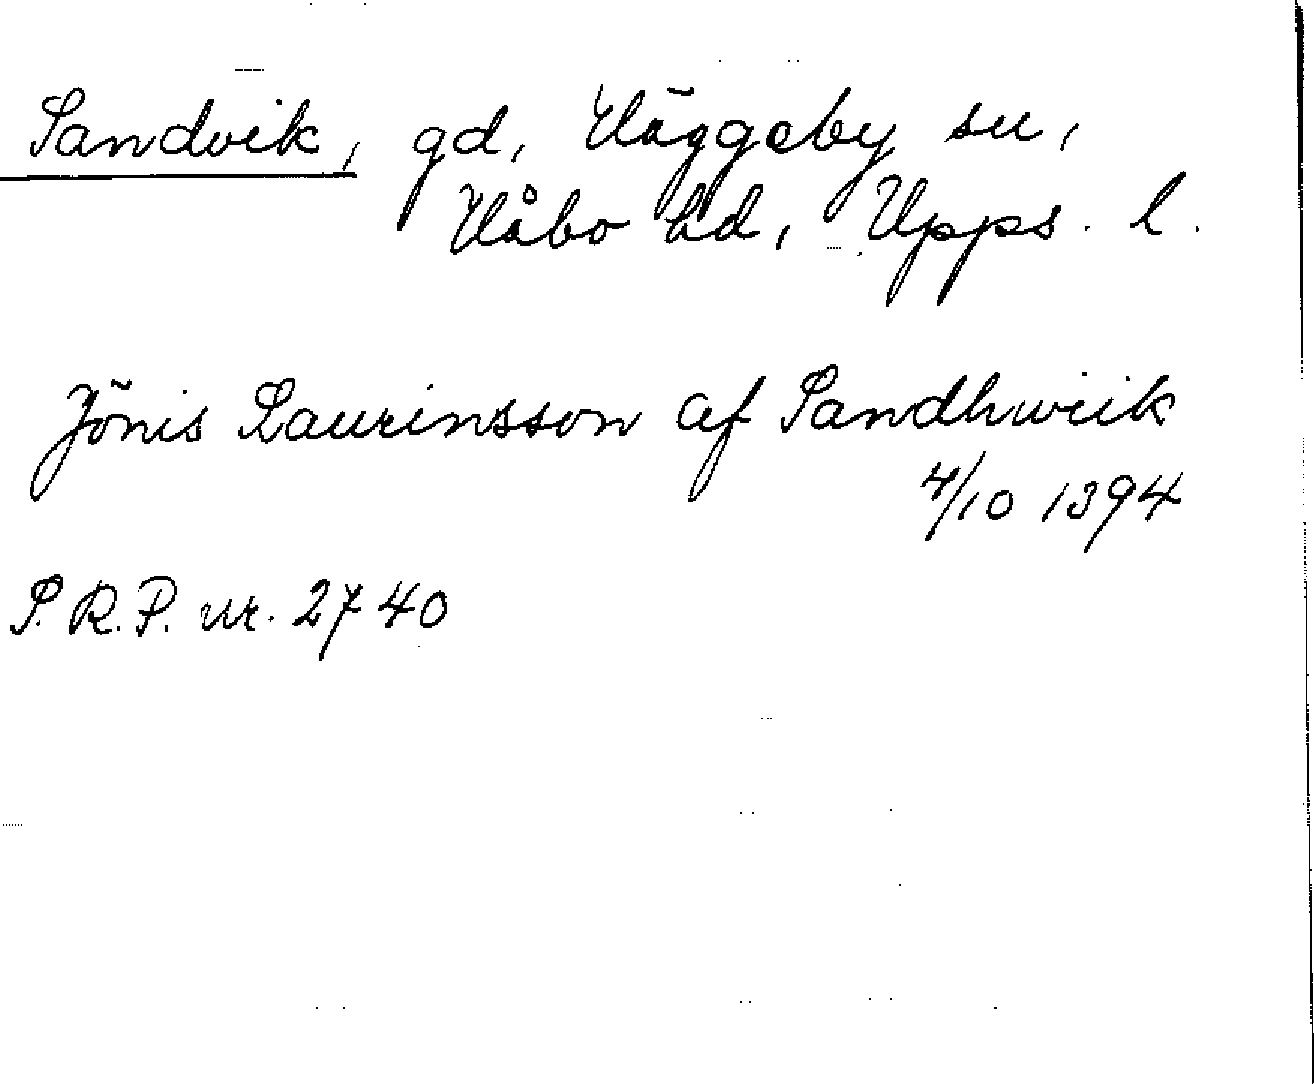 Sandvik, gd, Häggeby sn,
Håbo hd, Upps. l.
Jönis Laurinsson af Sandhwiik
4/10 1394
S.R.P. nr. 2740